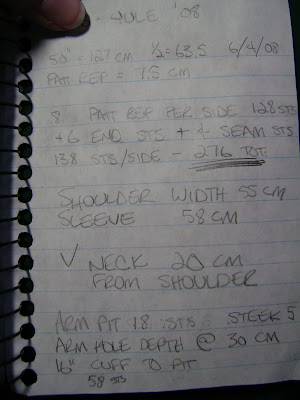 - YULE '08
50" = 127 CM 1/2 = 63.5 6/4/08
PATT REP = 7.5 CM
8 PATT REP PER SIDE 128 STS
+6 END STS + 4 SEAM STS
138 STS/SIDE - 276 TOT.
SHOULDER WIDTH 55 CM
SLEEVE 58 CM
V NECK 20 CM
FROM SHOULDER
ARM PIT 18 STS STEEK 5
ARM HOLE DEPTH @ 30 CM
16" CUFF TO PIT
58 STS